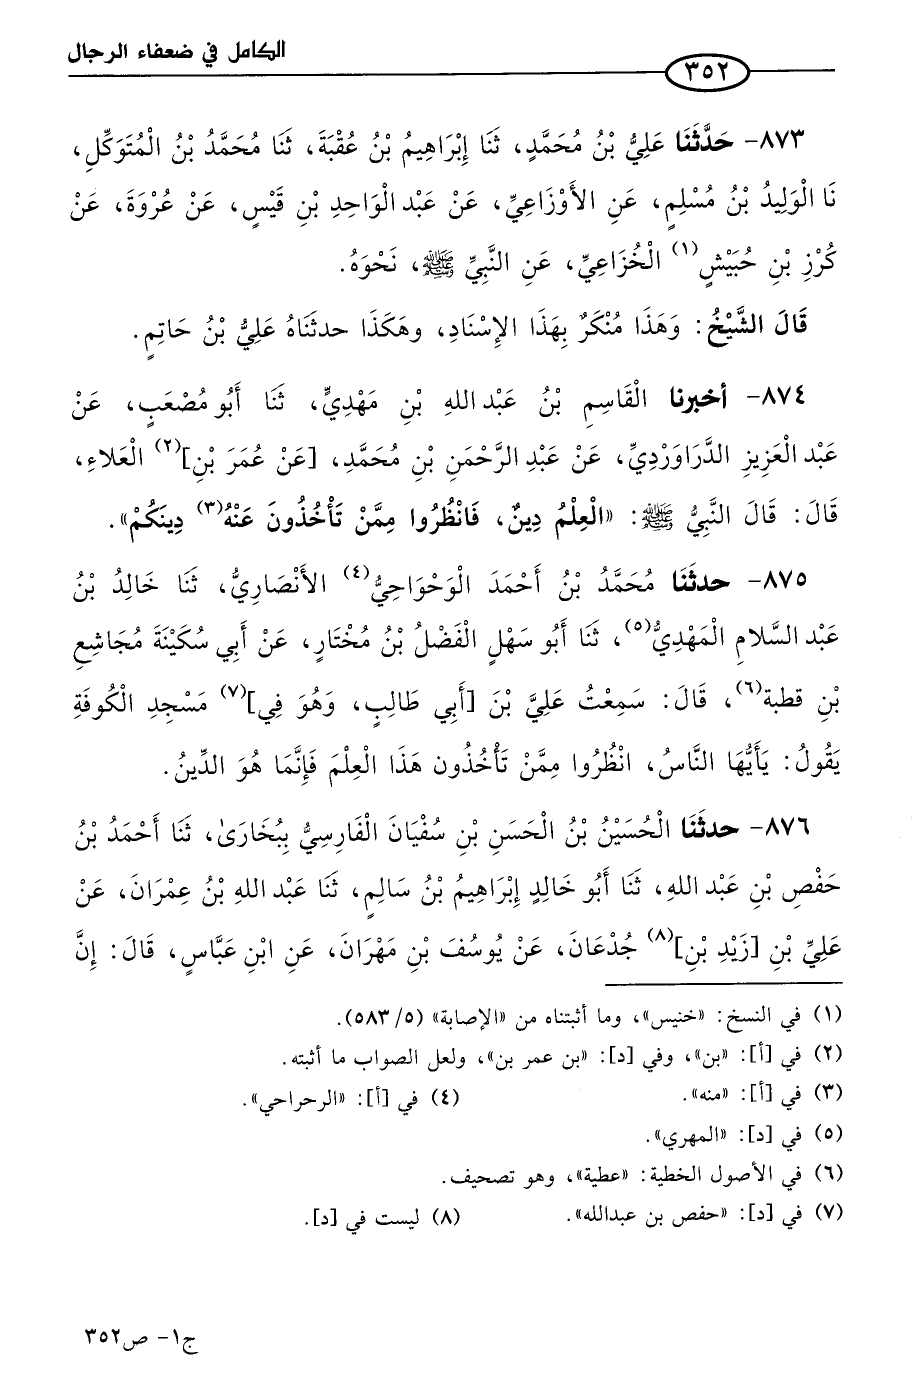 الكامل في ضعفاء الرجال
٣٥٢
٨٧٣- حَدَّثَنَا عَلِيُّ بْنُ مُحَمَّدٍ، ثَنَا إِبْرَاهِيمُ بْنُ عُقْبَةَ، ثَنَا مُحَمَّدُ بْنُ الْمُتَوَكِّلِ،
نَا الْوَلِيدُ بْنُ مُسْلِمٍ، عَنِ الأَوْزَاعِيِّ، عَنْ عَبْدِ الْوَاحِدِ بْنِ قَيْسٍ، عَنْ عُرْوَةَ، عَنْ
كُرْزِ بْنِ حُبَيْشٍ(١) الْخُزَاعِيِّ، عَنِ النَّبِيِّ ﷺ، نَحْوَهُ.
قَالَ الشَّيْخُ: وَهَذَا مُنْكَرٌ بِهَذَا الإِسْنَادِ، وهَكَذَا حدثَنَاهُ عَلِيُّ بْنُ حَاتِمٍ.
٨٧٤- أخبرنا الْقَاسِمِ بْنُ عَبْدِ اللهِ بْنِ مَهْدِيٍّ، ثَنَا أَبُو مُصْعَبٍ، عَنْ
عَبْدِ الْعَزِيزِ الدَّرَاوَرْدِيِّ، عَنْ عَبْدِ الرَّحْمَنِ بْنِ مُحَمَّدِ، [عَنْ عُمَرَ بْنِ](٢) الْعَلاءِ،
قَالَ: قَالَ النَّبِيُّ ﷺ: «الْعِلْمُ دِينٌ، فَانْظُرُوا مِمَّنْ تَأْخُذُونَ عَنْهُ(٣) دِينَكُمْ».
٨٧٥- حدثَنَا مُحَمَّدُ بْنُ أَحْمَدَ الْوَحْوَاحِيُّ(٤) الأَنْصَارِيُّ، ثَنَا خَالِدُ بْنُ
عَبْدِ السَّلامِ الْمَهْدِيُّ(٥)، ثَنَا أَبُو سَهْلٍ الْفَضْلُ بْنُ مُخْتَارٍ، عَنْ أَبِي سُكَيْنَةَ مُجَاشِعِ
بْنِ قطبة(٦)، قَالَ: سَمِعْتُ عَلِيَّ بْنَ [أَبِي طَالِبٍ، وَهُوَ فِي](٧) مَسْجِدِ الْكُوفَةِ
يَقُولُ: يَأَيُّهَا النَّاسُ، انْظُرُوا مِمَّنْ تَأْخُذُون هَذَا الْعِلْمَ فَإِنَّمَا هُوَ الدِّينُ.
٨٧٦- حدثَنَا الْحُسَيْنُ بْنُ الْحَسَنِ بْنِ سُفْيَانَ الْفَارِسِيُّ بِبُخَارَىٰ، ثَنَا أَحْمَدُ بْنُ
حَفْصِ بْنِ عَبْدِ اللهِ، ثَنَا أَبُو خَالِدٍ إِبْرَاهِيمُ بْنُ سَالِمٍ، ثَنَا عَبْدُ اللهِ بْنُ عِمْرَانَ، عَنْ
عَلِيِّ بْنِ [زَيْدِ بْنِ](٨) جُدْعَانَ، عَنْ يُوسُفَ بْنِ مَهْرَانَ، عَنِ ابْنِ عَبَّاسٍ، قَالَ: إِنَّ
(١) في النسخ: «خنيس»، وما أثبتناه من «الإصابة» (٥/ ٥٨٣).
(٢) في [أ]: «بن»، وفي [د]: «بن عمر بن»، ولعل الصواب ما أثبته.
(٣) في [أ]: «منه». (٤) في [أ]: «الرحراحي».
(٥) في [د]: «المهري».
(٦) في الأصول الخطية: «عطية»، وهو تصحيف.
(٧) في [د]: «حفص بن عبدالله». (٨) ليست في [د].
ج١- ص٣٥٢